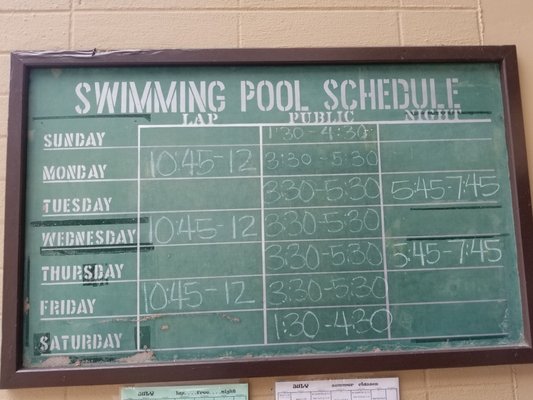 SWIMMING POOL SCHEDULE
LAP PUBLIC NIGHT
SUNDAY 1:30-4:30
MONDAY 10:45-12 3:30-5:30
TUESDAY 3:30-5:30 5:45-7:45
WEDNESDAY 10:45-12 3:30-5:30
THURSDAY 3:30-5:30 5:45-7:45
FRIDAY 10:45-12 3:30-5:30
SATURDAY 1:30-4:30
JULY summer classes